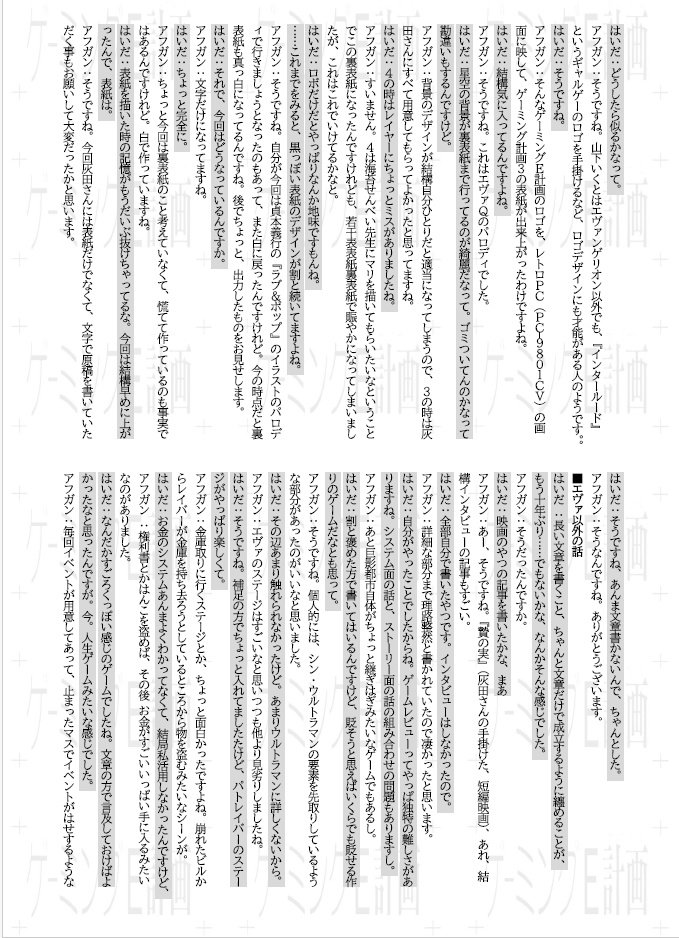 はいだ：どうしたら似るかなって。
アフガン：そうですね。山下いくとはエヴァンゲリオン以外でも、『インタールード』
というギャルゲーのロゴを手掛けるなど、ロゴデザインにも才能がある人のようです。。
はいだ：そうですね。
アフガン：そんなゲーミングE計画のロゴを、レトロPC（PC9801CV）の画
面に映して、ゲーミング計画3の表紙が出来上がったわけですよね。
はいだ：結構気に入ってるんですよね。
アフガン：そうですね。これはエヴァQのパロディでした。
はいだ：星空の背景が裏表紙まで行ってるのが綺麗だなって。ゴミついてんのかなって
勘違いもするんですけど。
アフガン：背景のデザインが結構自分ひとりだと適当になってしまうので、3の時は灰
田さんにすべて用意してもらってよかったと思ってますね。
はいだ：4の時はレイヤーにちょっとミスがありましたね。
アフガン：すいません。4は海苔せんべい先生にマリを描いてもらいたいなということ
でこの裏表紙になったんですけれども、若干表表紙裏表紙で賑やかになってしまいまし
たが、これはこれでいけてるかなと。
はいだ：ロボだけだとやっぱりなんか地味ですもんね。
……これまでをみると、黒っぽい表紙のデザインが割と続いてますよね。
アフガン：そうですね。自分が今回は貞本義行の『ラブ&ポップ』のイラストのパロデ
ィで行きましょうとなったのもあって、また白に戻ったんですけれど。今の時点だと裏
表紙も真っ白になってるんですね。後でちょっと、出力したものをお見せします。
はいだ：それで、今回はどうなっているんですか。
アフガン：文字だけになってますね。
はいだ：ちょっと完全に。
アフガン：ちょっと今回は裏表紙のこと考えていなくて、慌てて作っているのも事実で
はあるんですけれど。白で作っていますね。
はいだ：表紙を描いた時の記憶がもうだいぶ抜けちゃってるな。今回は結構早めに上が
ったんで、表紙は。
アフガン：そうですね。今回灰田さんには表紙だけでなくて、文字で原稿を書いていた
だく事もお願いして大変だったかと思います。
はいだ：そうですね、あんま文章書かないんで、ちゃんとした。
アフガン：そうなんですね。ありがとうございます。
■エヴァ以外の話
はいだ：長い文章を書くこと、ちゃんと文章だけで成立するように纏めることが、
もう十年ぶり……でもないかな、なんかそんな感じでした。
アフガン：そうだったんですか。
はいだ：映画のやつの記事を書いたかな、まあ
アフガン：あー、そうですね。『贄の実』（灰田さんの手掛けた、短編映画）、あれ、結
構インタビューの記事もすごい。
はいだ：全部自分で書いたやつです。インタビューはしなかったので。
アフガン：詳細な部分まで理路整然と書かれていたので凄かったと思います。
はいだ：自分がやったことでしたからね。ゲームレビューってやっぱ独特の難しさがあ
りますね。システム面の話と、ストーリー面の話の組み合わせの問題もありますし。
アフガン：あと巨影都市自体がちょっと継ぎはぎみたいなゲームでもあるし。
はいだ：割と褒めた方で書いてはいるんですけど、貶そうと思えばいくらでも貶せる作
りのゲームだなとも思って。
アフガン：そうですね。個人的には、シン・ウルトラマンの要素を先取りしているよう
な部分があったのがいいなと思いました。
はいだ：その辺あまり触れられなかったけど。あまりウルトラマンに詳しくないから。
アフガン：エヴァのステージはすごいなと思いつつも他より見劣りしましたね。
はいだ：そうですね。補足の方でちょっと入れてましたけど、パトレイバーのステー
ジがやっぱり楽しくて。
アフガン：金庫取りに行くステージとか、ちょっと面白かったですよね。崩れたビルか
らレイバーが金庫を持ち去ろうとしているところから物を盗むみたいなシーンが。
はいだ：お金のシステムあんまよくわかってなくて、結局私活用しなかったんですけど、
アフガン：権利書とかはんこを盗めば、その後お金がすごいいっぱい手に入るみたい
なのがありました。
はいだ：なんだかすごろくっぽい感じのゲームでしたね。文章の方で言及しておけばよ
かったなと思ったんですが。今。人生ゲームみたいな感じでした。
アフガン：毎回イベントが用意してあって、止まったマスでイベントがはせするような